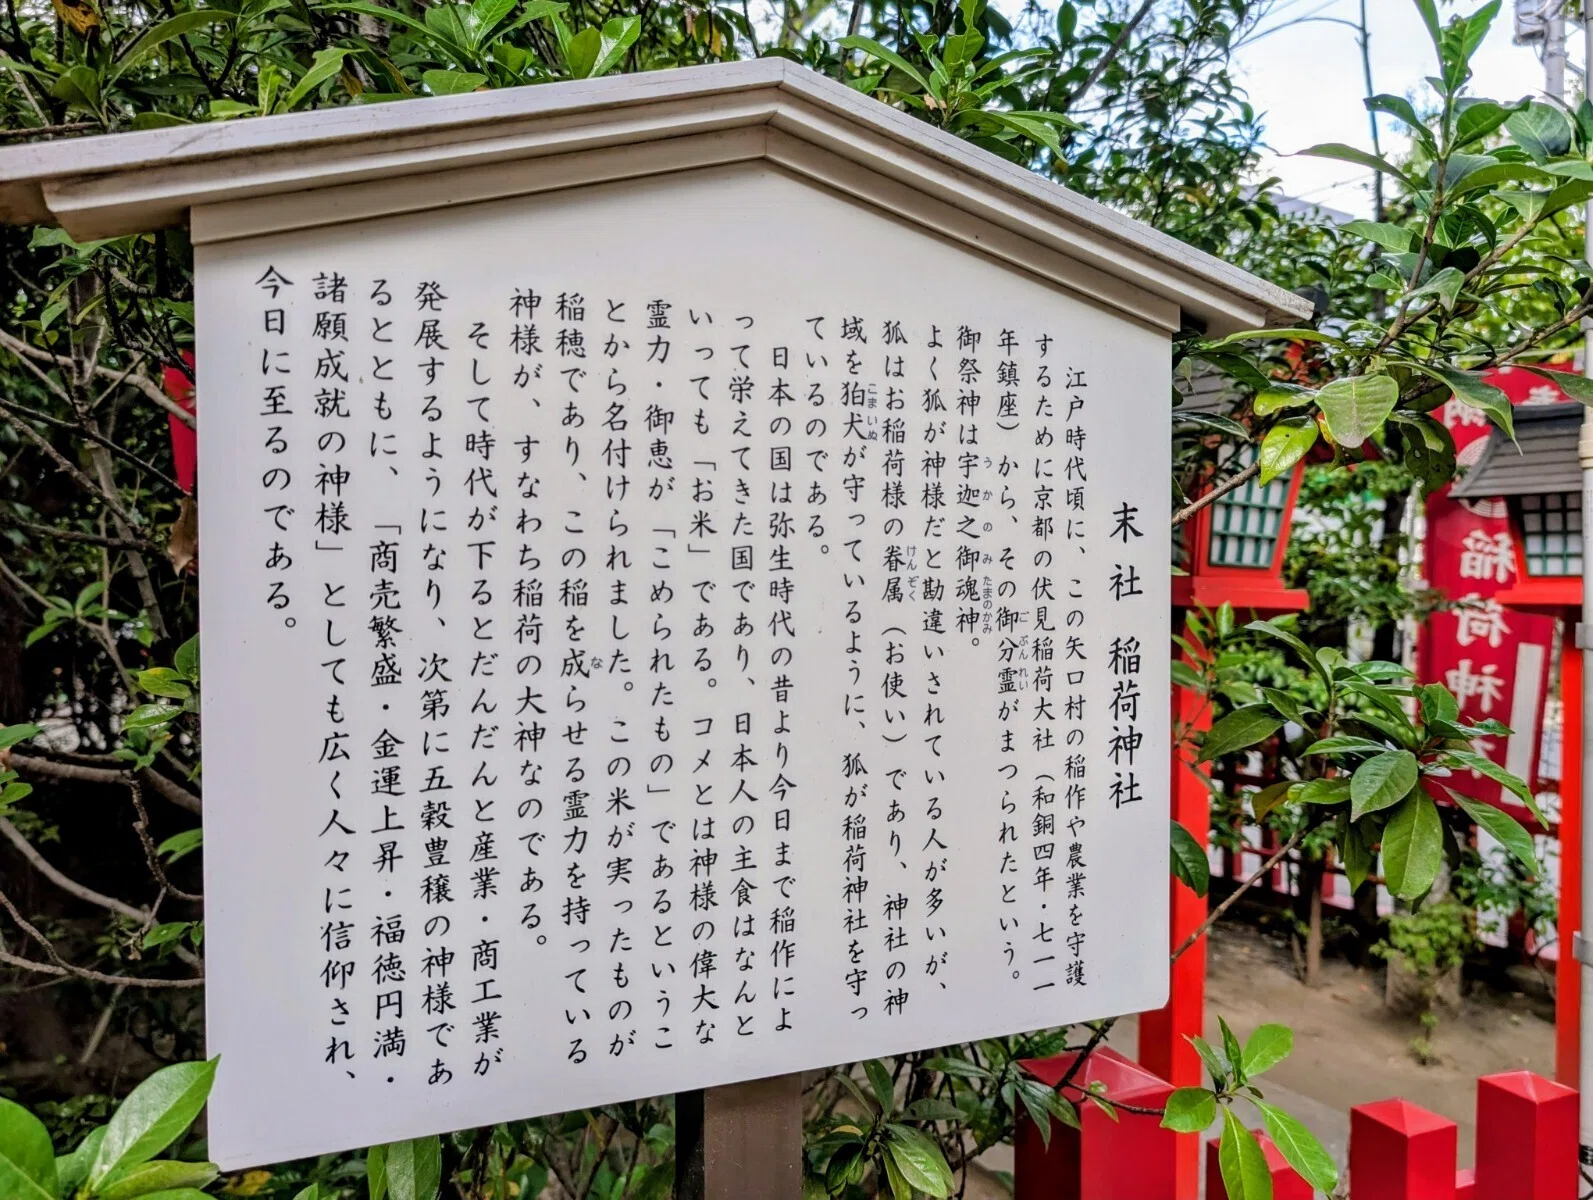 末社 稲荷神社
江戸時代頃に、この矢口村の稲作や農業を守護
するために京都の伏見稲荷大社（和銅四年・七一一
年鎮座）から、その御分霊がまつられたという。
ごぶんれい
御祭神は宇迦之御魂神。
うかのみたまのかみ
よく狐が神様だと勘違いされている人が多いが、
狐はお稲荷様の眷属（お使い）であり、神社の神
けんぞく
域を狛犬が守っているように、狐が稲荷神社を守っ
こまいぬ
ているのである。
日本の国は弥生時代の昔より今日まで稲作によ
って栄えてきた国であり、日本人の主食はなんと
いっても「お米」である。コメとは神様の偉大な
霊力・御恵が「こめられたもの」であるというこ
とから名付けられました。この米が実ったものが
稲穂であり、この稲を成らせる霊力を持っている
な
神様が、すなわち稲荷の大神なのである。
そして時代が下るとだんだんと産業・商工業が
発展するようになり、次第に五穀豊穣の神様であ
るとともに、「商売繁盛・金運上昇・福徳円満・
諸願成就の神様」としても広く人々に信仰され、
今日に至るのである。
稲荷神